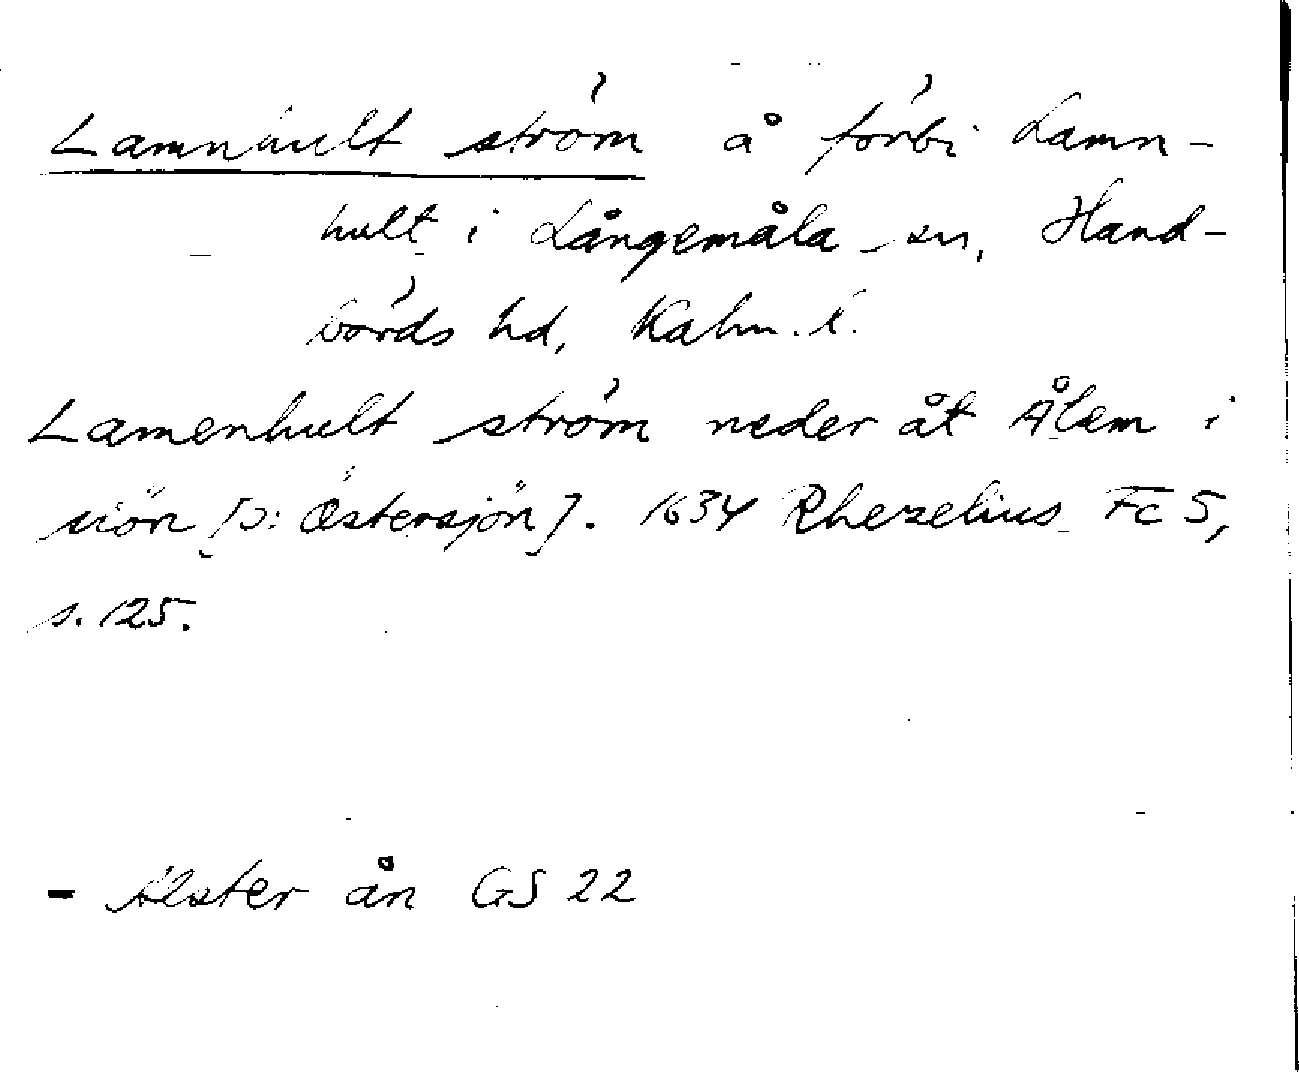 Lamnhult ström å förbi Lamn-
hult i Långemåla sn, Hand-
börds hd, Kalm. l.
Lamenhult ström neder åt Ålem i
siön [ɔ: Östersjön]. 1634 Rhezelius Fc 5,
s. 125.
- Alster ån GS 22